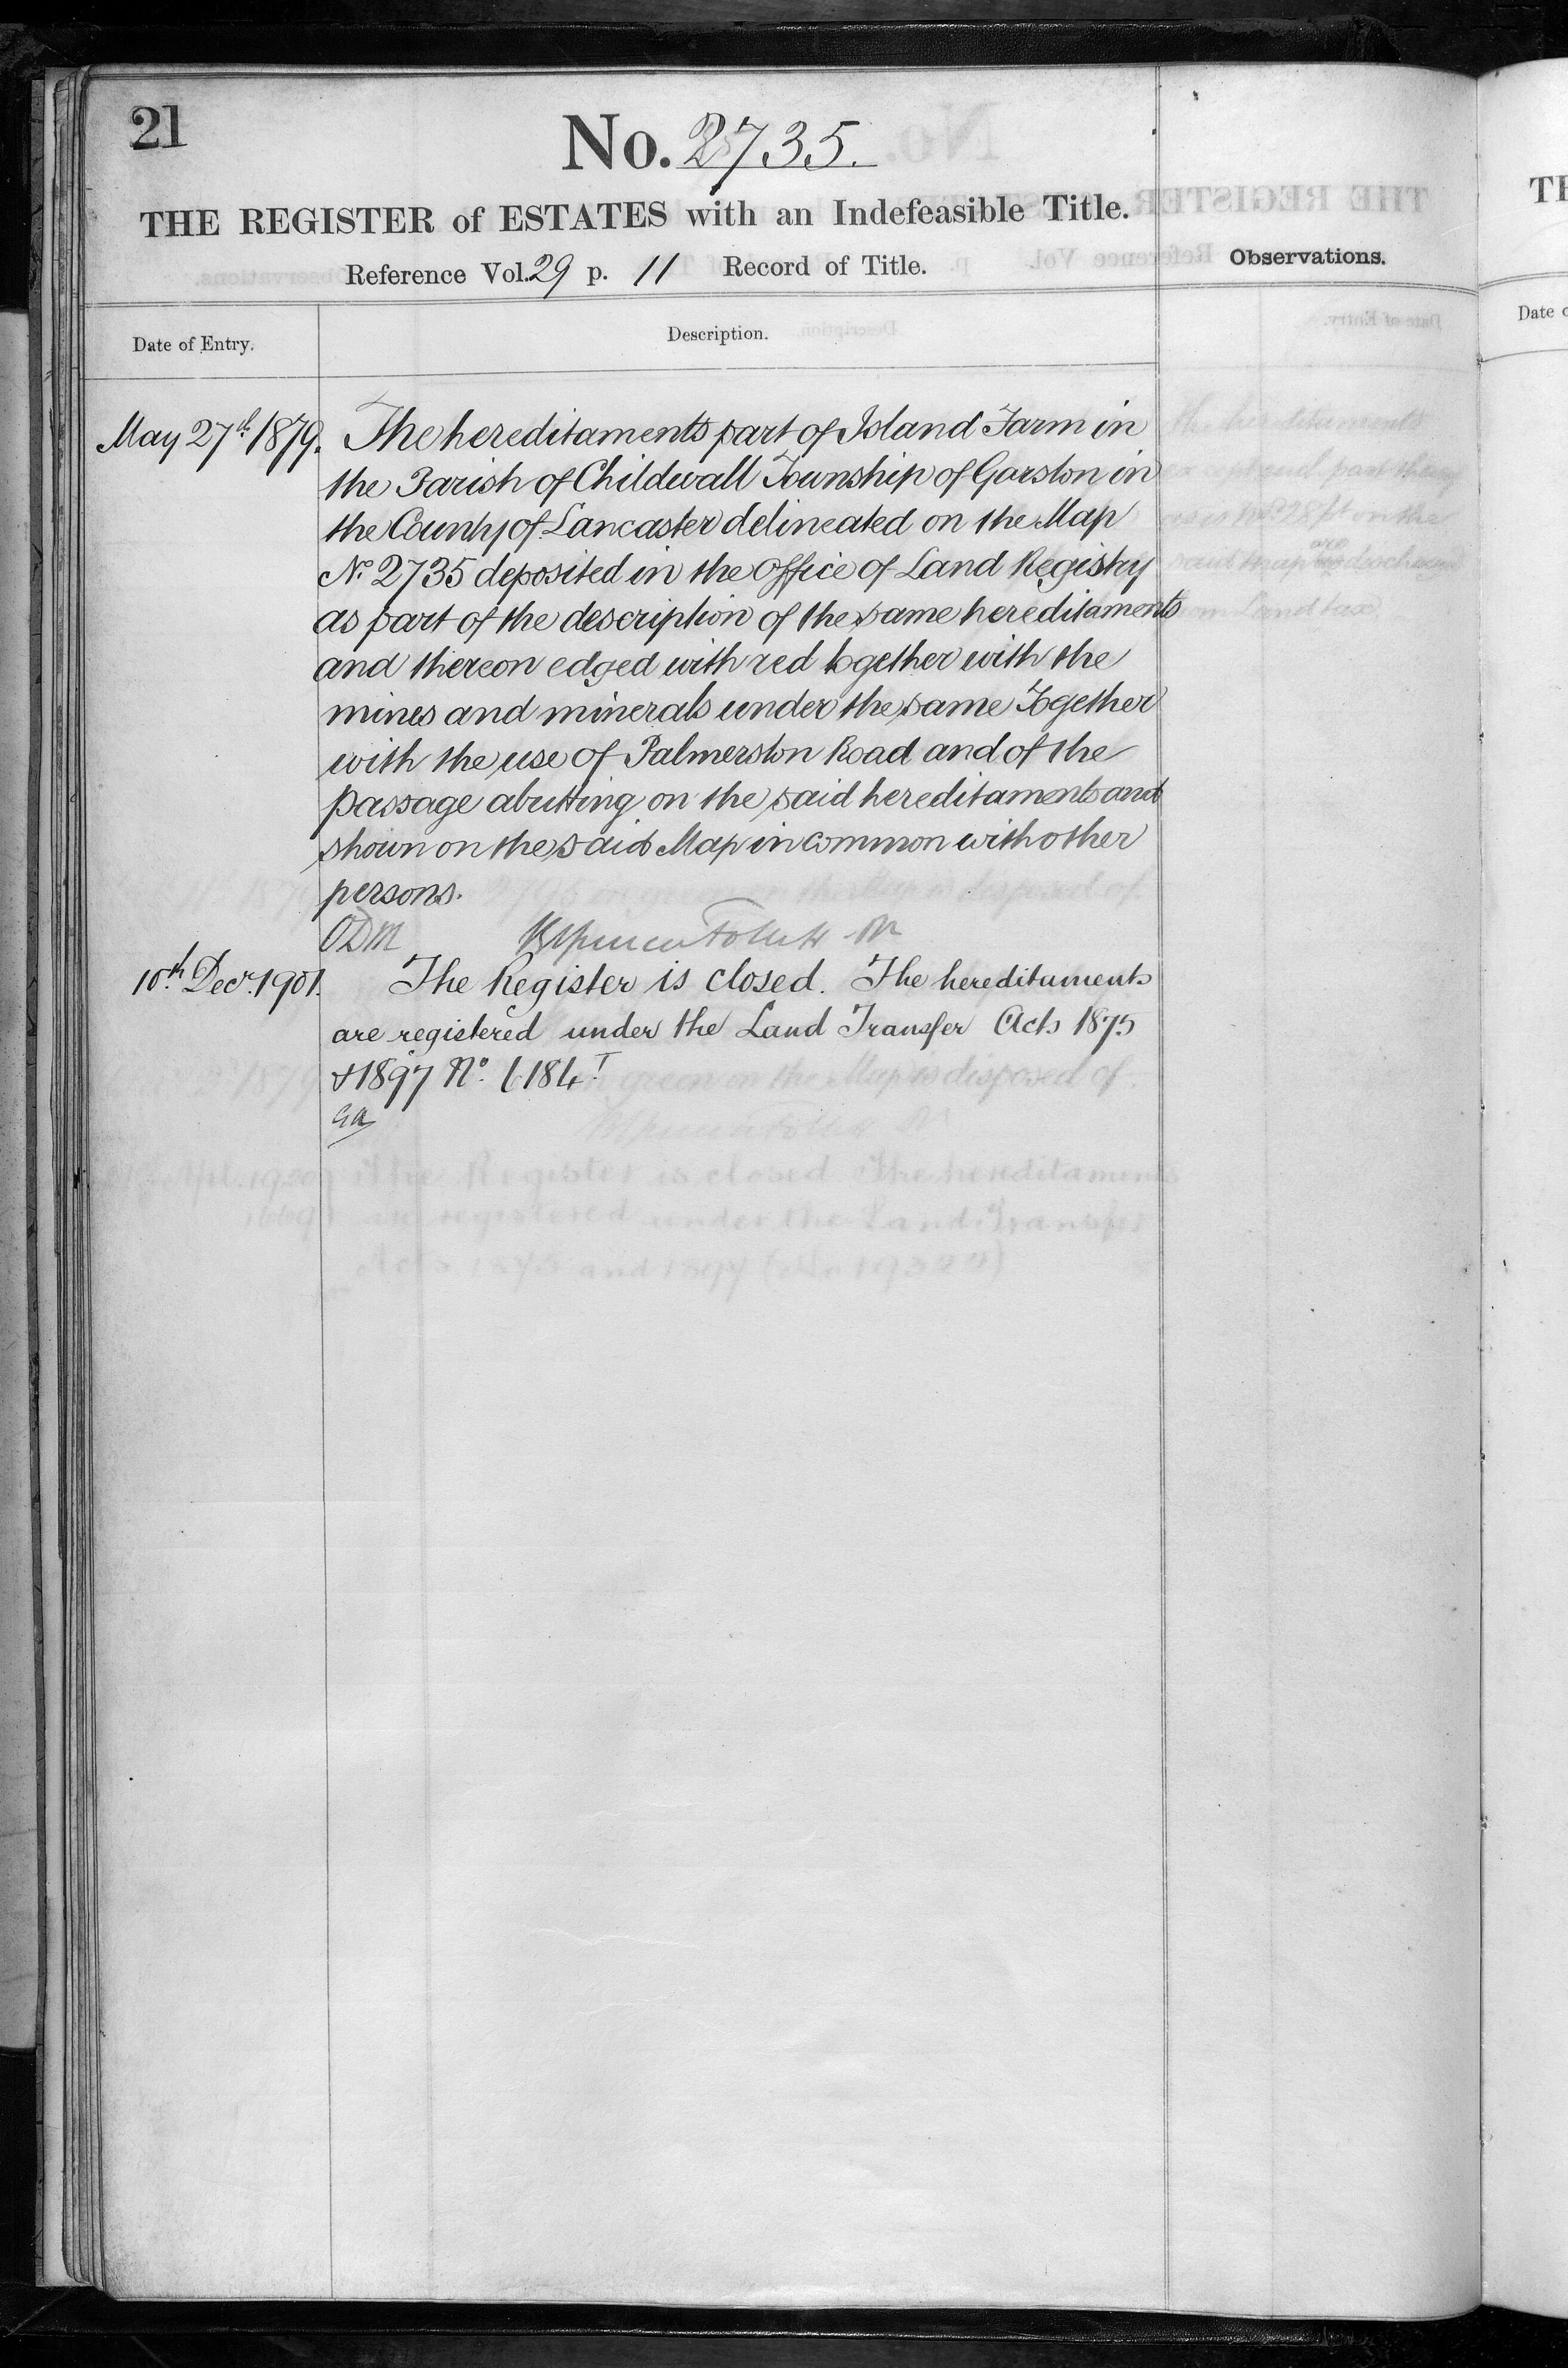 21
No. 2735.
THE REGISTER of ESTATES with an Indefeasible Title.
Reference Vol. 29 p. 11 Record of Title.
Observations.
Date of Entry.
Description.
May 27th 1879. The hereditaments part of Island Farm in
the Parish of Childwall Township of Garston in
the County of Lancaster delineated on the Map
No. 2735 deposited in the Office of Land Registry
as part of the description of the same hereditaments
and thereon edged with red together with the
mines and minerals under the same Together
with the use of Palmerston Road and of the
passage abutting on the said hereditaments and
shown on the said Map in common with other
persons.
ODM
10th Decr. 1901. The Register is closed. The hereditaments
are registered under the Land Transfer Acts 1875
& 1897 No.
TH
Date